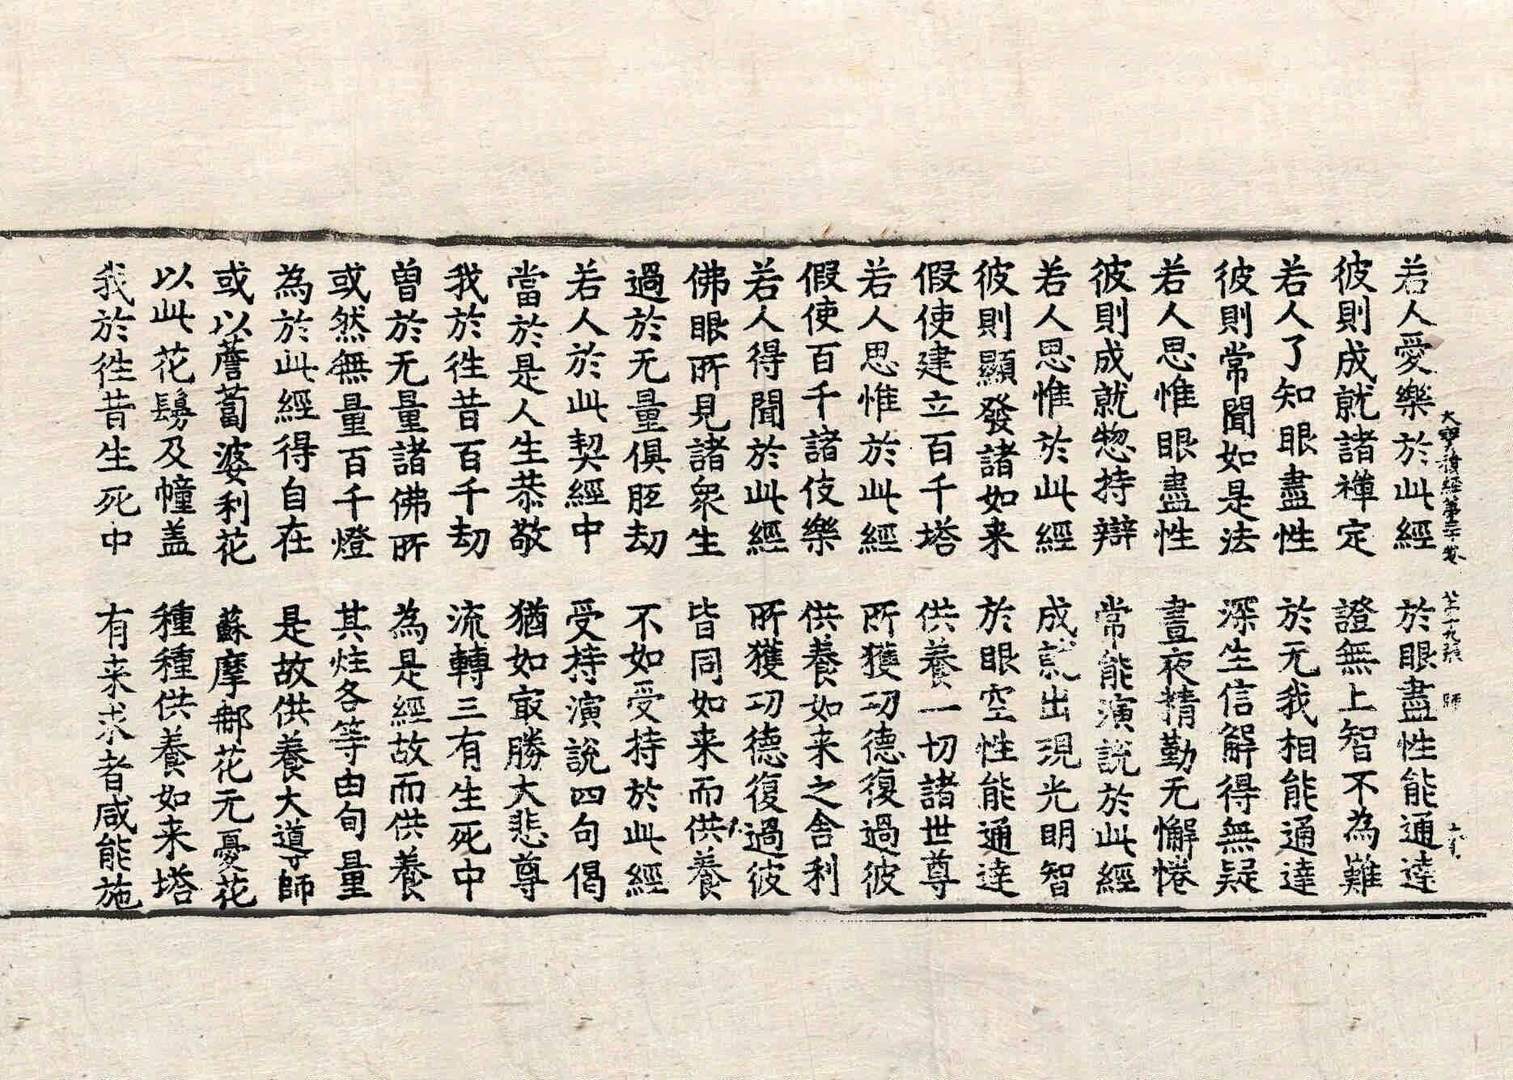 大寶積經第三十卷 第二十九張 師
若人愛樂於此經 於眼盡性能通達
彼則成就諸禅定 證無上智不為難
若人了知眼盡性 於无我相能通達
彼則常聞如是法 深生信解得無疑
若人思惟眼盡性 晝夜精勤无懈惓
彼則成就惣持辯 常能演說於此經
若人思惟於此經 成就出現光明智
彼則顯發諸如来 於眼空性能通達
假使建立百千塔 供養一切諸世尊
若人思惟於此經 所獲功德復過彼
假使百千諸伎樂 供養如来之舍利
若人得聞於此經 所獲功德復過彼
佛眼所見諸衆生 皆同如来而供養
過於无量俱胝劫 不如受持於此經
若人於此契經中 受持演說四句偈
當於是人生恭敬 猶如㝡勝大悲尊
我於徃昔百千劫 流轉三有生死中
曽於无量諸佛所 為是經故而供養
或然無量百千燈 其炷各等由旬量
為於此經得自在 是故供養大導師
或以薝蔔婆利花 蘇摩那花无憂花
以此花鬘及幢盖 種種供養如来塔
我於徃昔生死中 有来求者咸能施